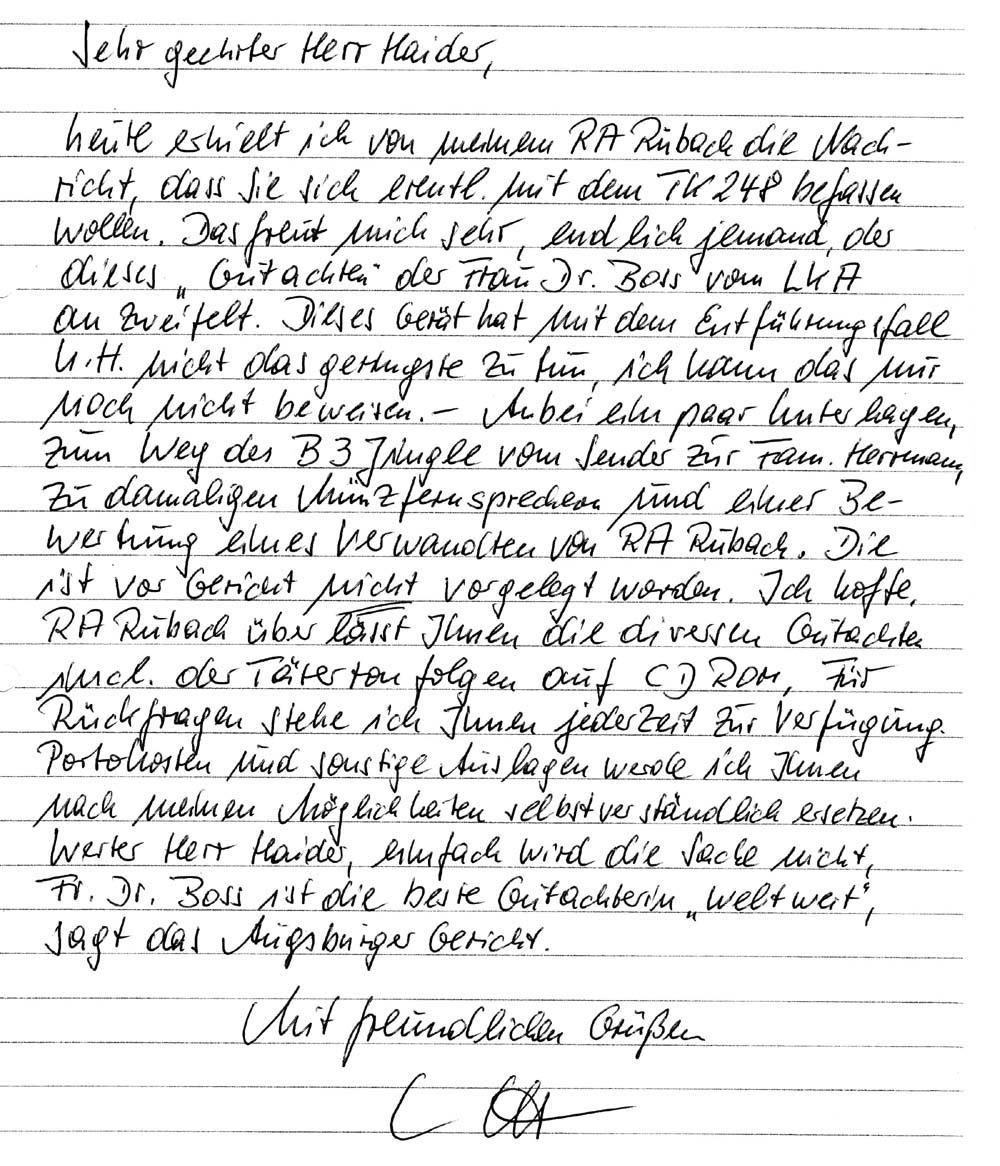 Sehr geehrter Herr Haider,
heute erhielt ich von meinem RA Rubach die Nach-
richt, dass Sie sich eventl. mit dem TK 248 befassen
wollen. Das freut mich sehr, endlich jemand, der
dieses „Gutachten" der Frau Dr. Boss vom LKA
anzweifelt. Dieses Gerät hat mit dem Entführungsfall
U.H. nicht das geringste zu tun, ich kann das nur
noch nicht beweisen. – Anbei ein paar Unterlagen,
zum Weg des B3 Jingle vom Sender zur Fam. Herrmann,
zu damaligen Münzfernsprechern und einer Be-
wertung eines Verwandten von RA Rubach. Die
ist vor Gericht nicht vorgelegt worden. Ich hoffe,
RA Rubach überlässt Ihnen die diversen Gutachten
incl. der Tätertonfolgen auf CD ROM, Für
Rückfragen stehe ich Ihnen jederzeit zur Verfügung.
Portokosten und sonstige Auslagen werde ich Ihnen
nach meinen Möglichkeiten selbstverständlich ersetzen.
Werter Herr Haider, einfach wird die Sache nicht,
Fr. Dr. Boss ist die beste Gutachterin „weltweit",
sagt das Augsburger Gericht.
Mit freundlichen Grüßen